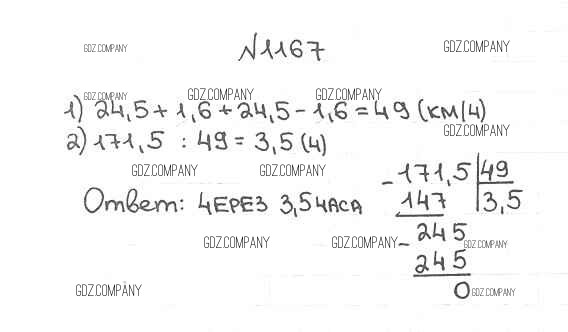 №1167
GDZ.COMPANY GDZ.COMPANY
GDZ.COMPANY GDZ.COMPANY GDZ.COMPANY
1) 24,5 + 1,6 + 24,5 - 1,6 = 49 (км/ч)
GDZ.COMPANY
2) 171,5 : 49 = 3,5 (ч)
GDZ.COMPANY GDZ.COMPANY
- 171,5 | 49
Ответ: ЧЕРЕЗ 3,5 ЧАСА
147 | 3,5
- 245
GDZ.COMPANY GDZ.COMPANY GDZ.COMPANY
245
0
GDZ.COMPANY GDZ.COMPANY